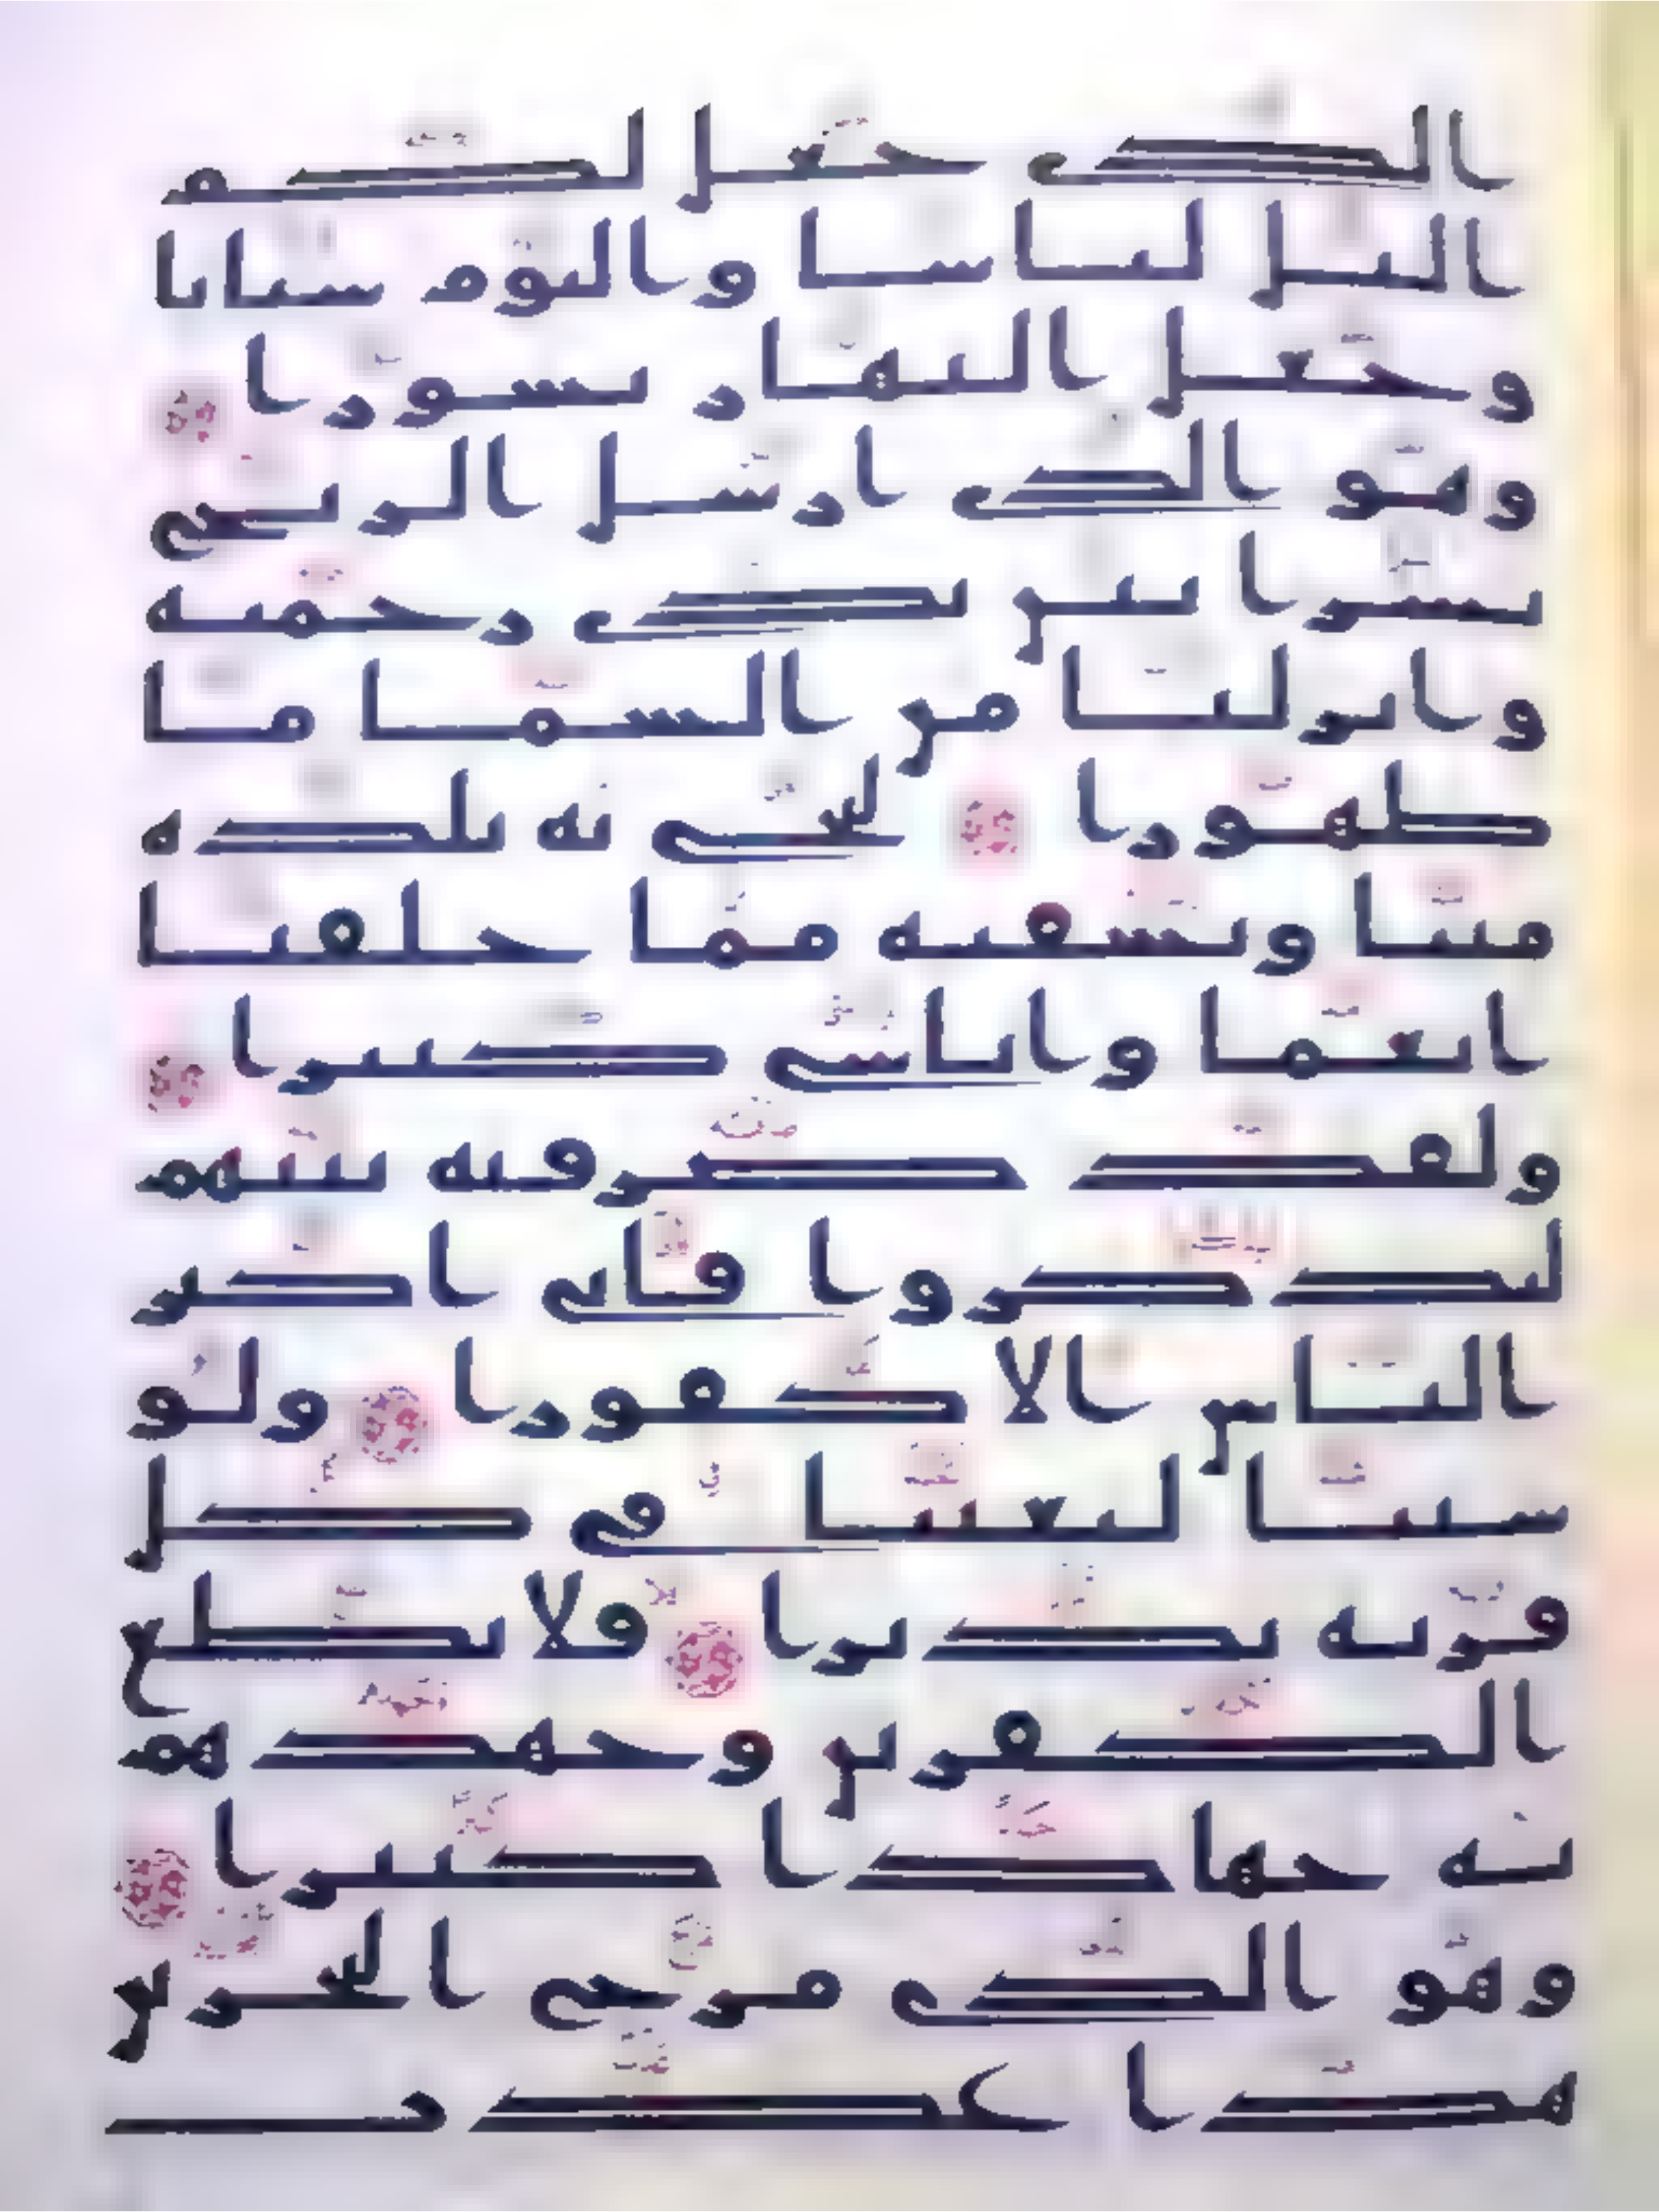 الذي جعل لكم
اليل لباسا والنوم سباتا
وجعل النهار نشورا
وهو الذي ارسل الريح
بشرا بين يدي رحمته
وانزلنا من السما ما
طهورا لنحي به بلده
ميتا ونسقيه مما خلقنا
انعما واناسي كثيرا
ولقد صرفنه بينهم
ليذكروا فابى اكثر
الناس الا كفورا ولو
شينا لبعثنا في كل
قرية نذيرا فلا تطع
الكفرين وجهدهم
به جهادا كبيرا
وهو الذي مرج البحرين
هذا عذب